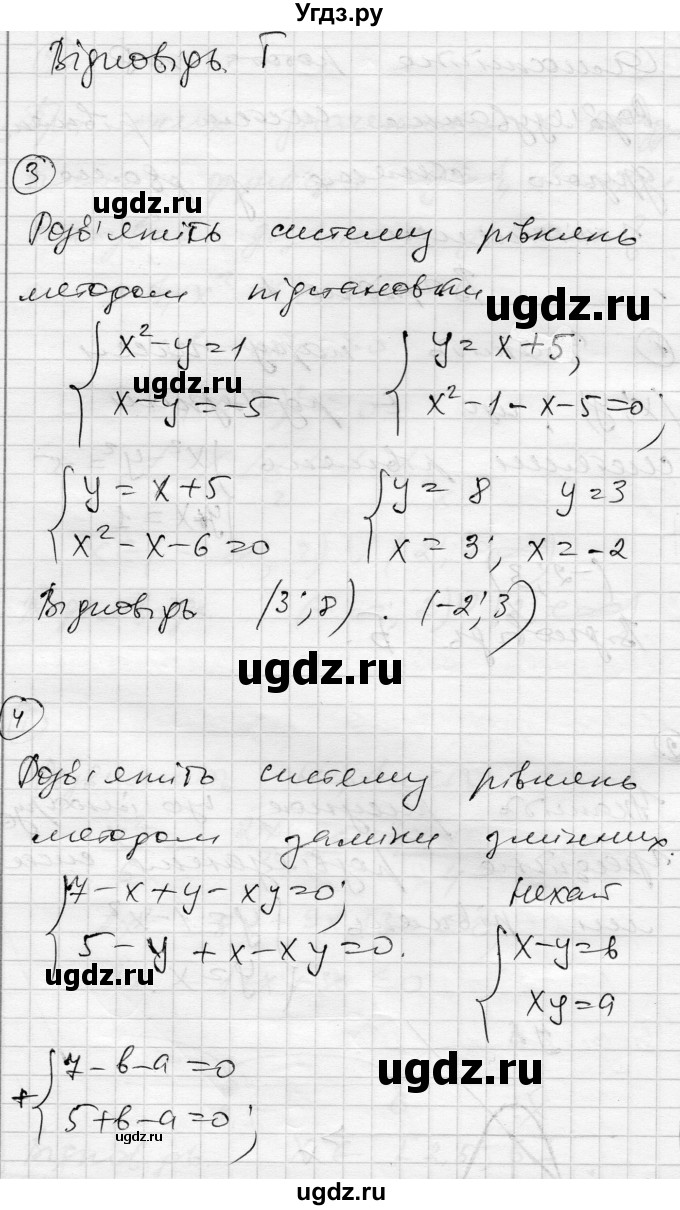 Угдз.ру
Відповідь Г
3
ugdz.ru
Розв'яжіть систему рівнянь
методом підстановки
ugdz.ru
{ x²-y=1
x-y=-5
ugdz.ru
{ y=x+5;
x²-1-x-5=0;
{ y=x+5
x²-x-6=0
{ y=8 y=3
x=3; x=-2
Відповідь (3;8). (-2;3)
ugdz.ru
4
Розв'яжіть систему рівнянь
методом заміни змінних:
{ 7-x+y-xy=0;
5-y+x-xy=0.
ugdz.ru
Нехай
{ x-y=в
xy=a
ugdz.ru
+{ 7-в-a=0
5+в-a=0;
ugdz.ru
ugdz.ru